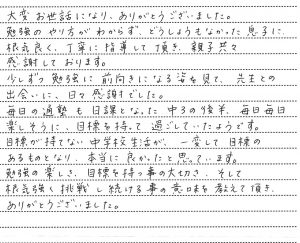 大変お世話になり、ありがとうございました。
勉強のやり方がわからず、どうしようもなかった息子に、
根気良く、丁寧に指導して頂き、親子共々
感謝しております。
少しずつ勉強に前向きになる姿を見て、先生との
出会いに、日々感謝でした。
毎日の通塾も日課となった中3の後半、毎日毎日
楽しそうに、目標を持って過ごしていたようです。
目標が持てない中学校生活が、一変して目標の
あるものとなり、本当に良かったと思っています。
勉強の楽しさ、目標を持つ事の大切さ、そして
根気強く挑戦し続ける事の意味を教えて頂き、
ありがとうございました。